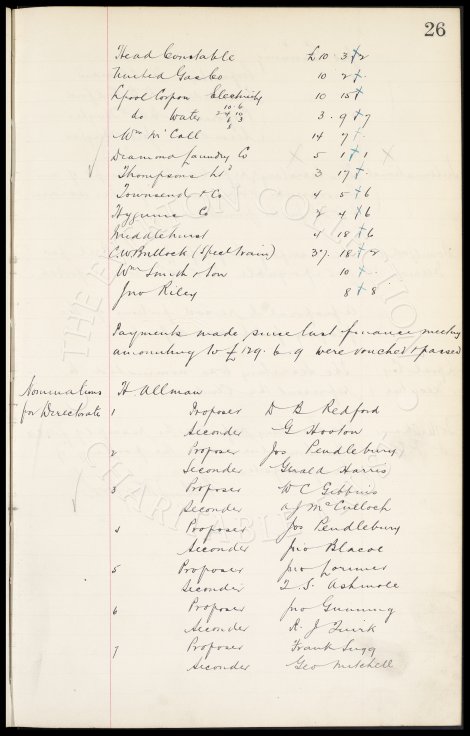 26
Head Constable £10 . 3 . 2
United Gas Co 10 2 .
Lpool Corpon Electricity 10 15
do Water 3 . 9 . 7
Wm McCall 14 7
Diamond Laundry Co 5 1 1
Thompsons Ltd 3 17
Townsend & Co 4 5 6
Hygienic Co 2 4 6
Middlehurst 4 18 6
C.W. Bullock (Spect train) 37. 18 2
Wm Smith & Son 10
Jno Riley 8 8
Payments made since last finance meeting
amounting to £129. 6. 9 were vouched & passed
Nominations H Allman
for Directorate 1 Proposer D B Redford
Seconder G Hooton
2 Proposer Jos Pendlebury
Seconder Gerald Harris
3 Proposer W C Gibbins
Seconder A J McCulloch
4 Proposer Jos Pendlebury
Seconder Jno Blacoe
5 Proposer Jno Lorimer
Seconder T. S. Ashmole
6 Proposer Jno Gunning
Seconder R. J Quirk
7 Proposer Frank Sugg
Seconder Geo Mitchell